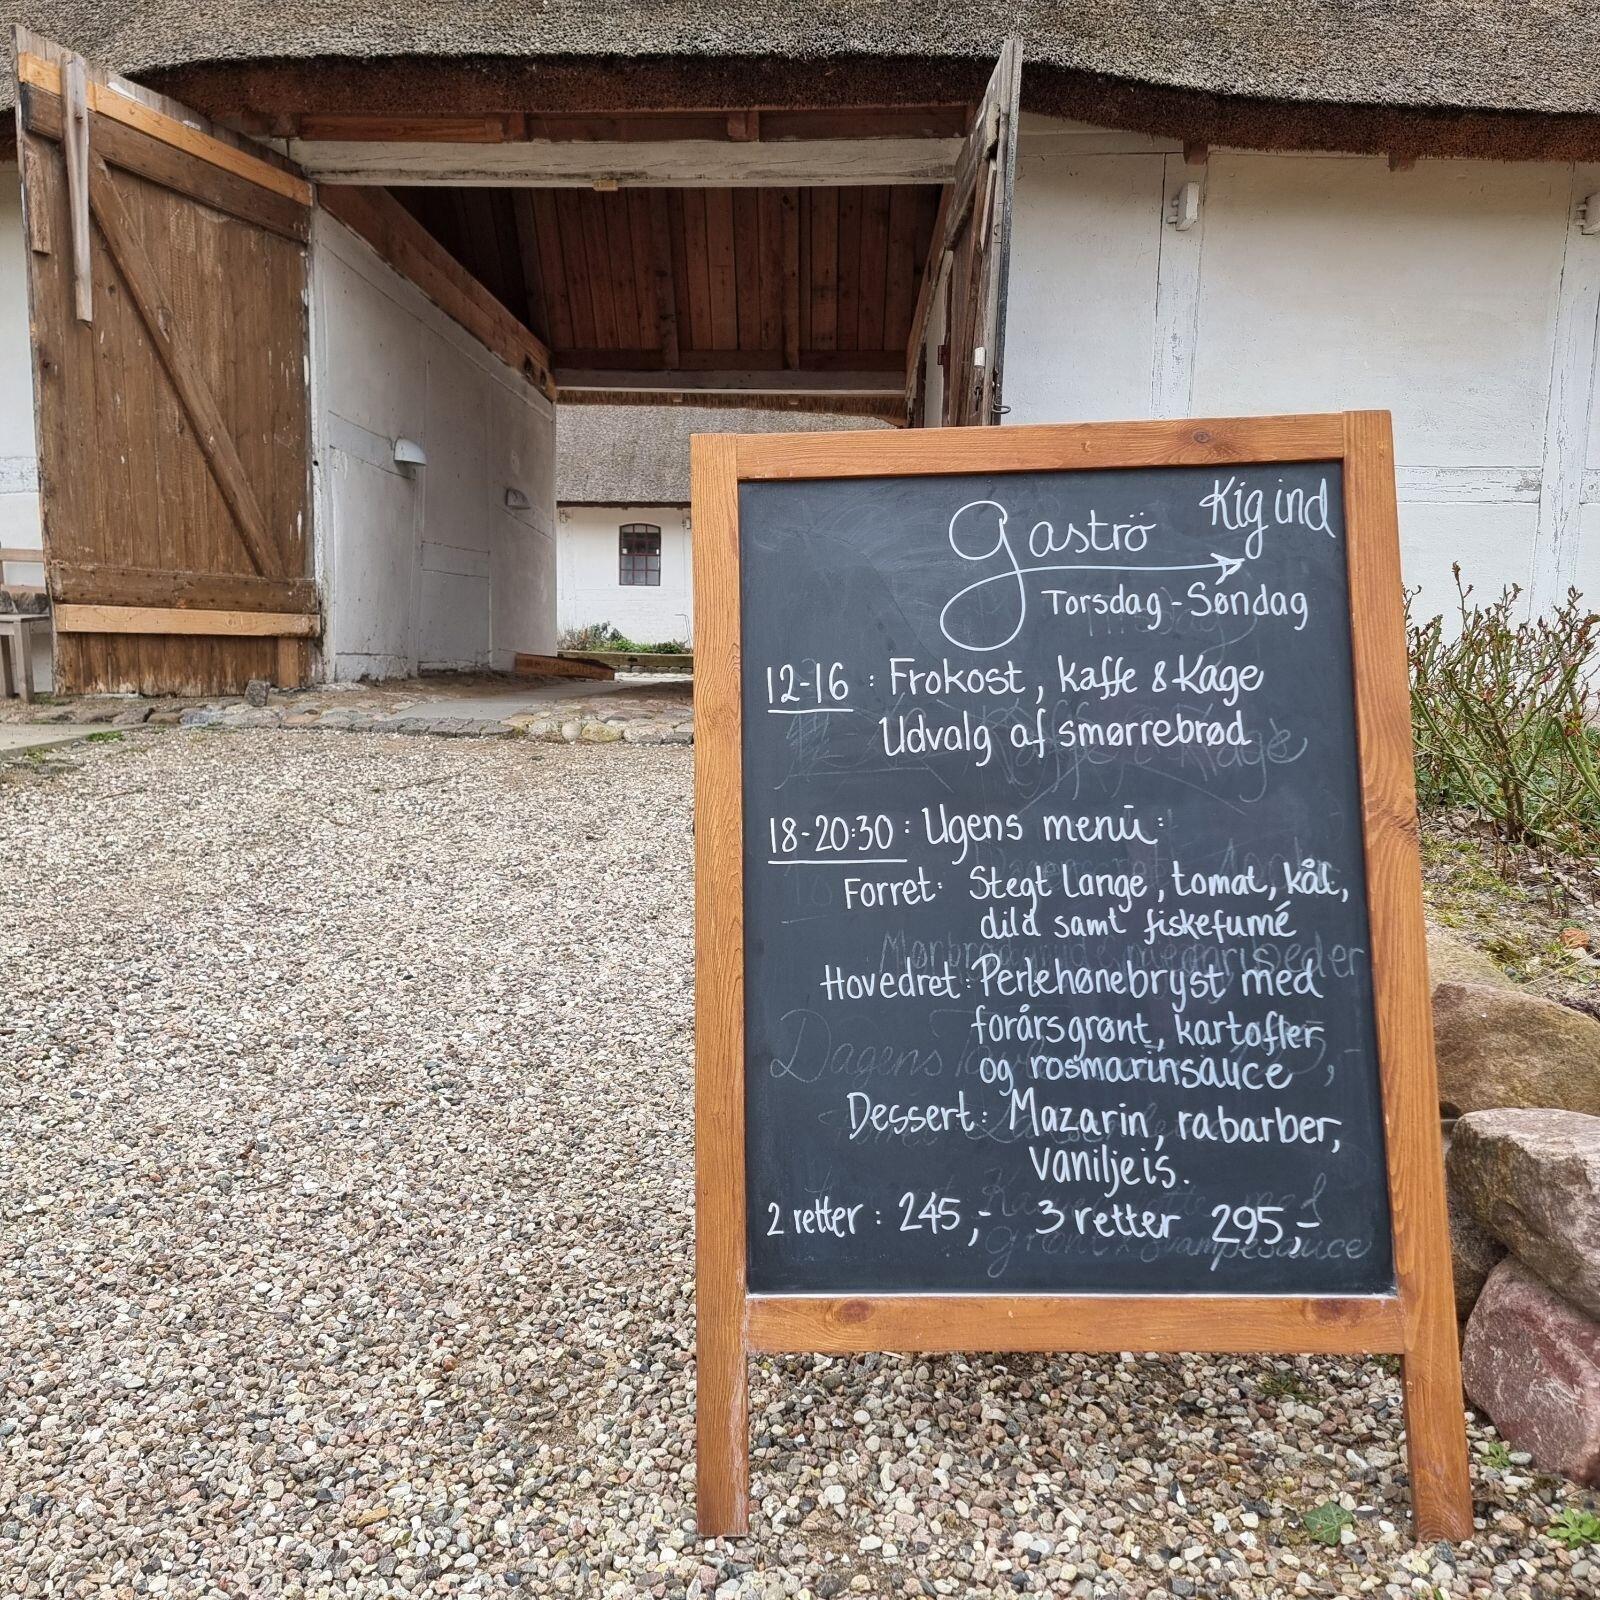 Gaströ Kig ind
Torsdag - Søndag
12-16 : Frokost, Kaffe & Kage
Udvalg af smørrebrød
18-20:30 : Ugens menu:
Forret: Stegt Lange, tomat, kål,
dild samt fiskefumé
Hovedret: Perlehønebryst med
forårsgrønt, kartofler
og rosmarinsauce
Dessert: Mazarin, rabarber,
vaniljeis.
2 retter : 245,- 3 retter 295,-